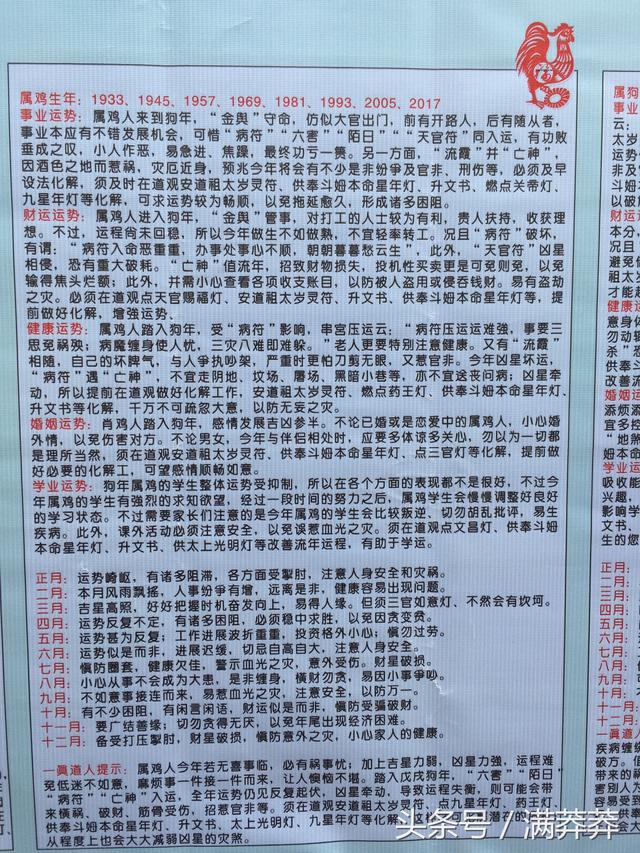 属鸡生年：1933、1945、1957、1969、1981、1993、2005、2017
事业运势：属鸡人来到狗年，“金舆”守命，仿似大官出门，前有开路人，后有随从者，
事业本应有不错发展机会，可惜“病符”“六害”“陌日”“天官符”同入运，有功败
垂成之叹，小人作恶，易急进、焦躁，最终功亏一篑。另一方面，“流霞”并“亡神”，
因酒色之地而惹祸，灾厄近身，预兆今年将会有不少是非纷争及官非、刑伤等，必须及早
设法化解，须及时在道观安道祖太岁灵符、供奉斗姆本命星年灯、升文书、燃点关帝灯、
九星年灯等化解，可求运势较为畅顺，以免拖延愈久，形成诸多困阻。
财运运势：属鸡人进入狗年，“金舆”管事，对打工的人士较为有利，贵人扶持，收获理
想。不过，运程尚未回稳，所以今年做生不如做熟，不宜轻率转工。况且“病符”破坏，
有谓：“病符入命恶重重，办事处事心不顺，朝朝暮暮愁云生”，此外，“天官符”凶星
相侵，恐有重大破耗。“亡神”值流年，招致财物损失，投机性买卖更是可免则免，以免
输得焦头烂额；此外，并需小心查看各项收支账目，以防被人盗用或侵吞钱财。易有盗劫
之灾。必须在道观点天官赐福灯、安道祖太岁灵符、升文书、供奉斗姆本命星年灯等，提
前做好化解，增强运势。
健康运势：属鸡人踏入狗年，受“病符”影响，串宫压运云：“病符压运运难强，事要三
思免祸殃；病魔缠身使人忧，三灾八难即难躲。”老人更要特别注意健康。又有“流霞”
相随，自己的坏脾气，与人争执吵架，严重时更怕刀剪无眼，又惹官非。今年凶星坏运，
“病符”遇“亡神”，不宜走阴地、坟场、屠场、黑暗小巷等，亦不宜送丧问病；凶星牵
动，所以提前在道观做好化解工作，安道祖太岁灵符、燃点药王灯、供奉斗姆本命星年灯、
升文书等化解，千万不可疏忽大意，以防无妄之灾。
婚姻运势：肖鸡人踏入本年，感情发展吉凶参半。不论已婚或是恋爱中的属鸡人，小心婚
外情，以免伤害对方。不论男女，今年与伴侣相处时，应要多体谅多关心，勿以为一切都
是理所当然，须在道观安道祖太岁灵符、供奉斗姆本命星年灯、点三官灯等化解，提前做
好必要的化解工，可望感情顺畅如意。
学业运势：狗年属鸡的学生整体运势受抑制，所以在各个方面的表现都不是很好，不过今
年属鸡的学生有强烈的求知欲望，经过一段时间的努力之后，属鸡学生会慢慢调整好良好
的学习状态。不过需要家长们注意的是今年属鸡的学生会比较叛逆、切勿胡乱批评，易生
疾病。此外，课外活动必须注意安全，以免误惹血光之灾。须在道观点文昌灯、供奉斗姆
本命星年灯、升文书、供太上光明灯等改善流年运程，有助于学运。
正月：运势崎岖，有诸多阻滞，各方面受掣肘，注意人身安全和灾祸。
二月：本月风雨飘摇，人事纷争有增，远离是非，健康容易出现问题。
三月：吉星高照，好好把握时机奋发向上，易得人缘。但须三官如意灯、不然会有坎坷。
四月：运势反复不定，有诸多困阻，必须稳中求胜，以免因贪变贫。
五月：运势甚为反复；工作进展波折重重，投资格外小心；慎勿过劳。
六月：运势似是而非，进展迟缓，切忌自高自大，注意人身安全。
七月：慎防圈套，健康欠佳，警示血光之灾，意外受伤。财星破损。
八月：小心从事不会成为大患，是非缠身，横财勿贪，易因小事争吵。
九月：不如意事接连而来，易惹血光之灾，注意安全，以防万一。
十月：有不少困阻，有闲言闲语，财运似是而非，慎防受骗破财。
十一月：要广结善缘；切勿贪得无厌，以免年尾出现经济困难。
十二月：备受打压掣肘，财星破损，慎防意外之灾，小心家人的健康。
一眞道人提示：属鸡人今年若无喜事临，必有祸事忧；加上吉星力弱，凶星力强，运程难
免低迷不如意，麻烦事一件接一件而来，让人懊恼不堪。踏入戊戌狗年，“六害”“陌日”
“病符”“亡神”入运，全年运势仍见反复起伏，凶星牵动，导致运程失衡，则可能会带
来横祸、破财，筋骨受伤，招惹官非等。须在道观安道祖太岁灵符、点九星年灯、药王灯、
供奉斗姆本命星年灯、升文书、太上光明灯、九星年灯等化解
从程度上也会大大减弱凶星的灾煞。
头条号／满莽莽